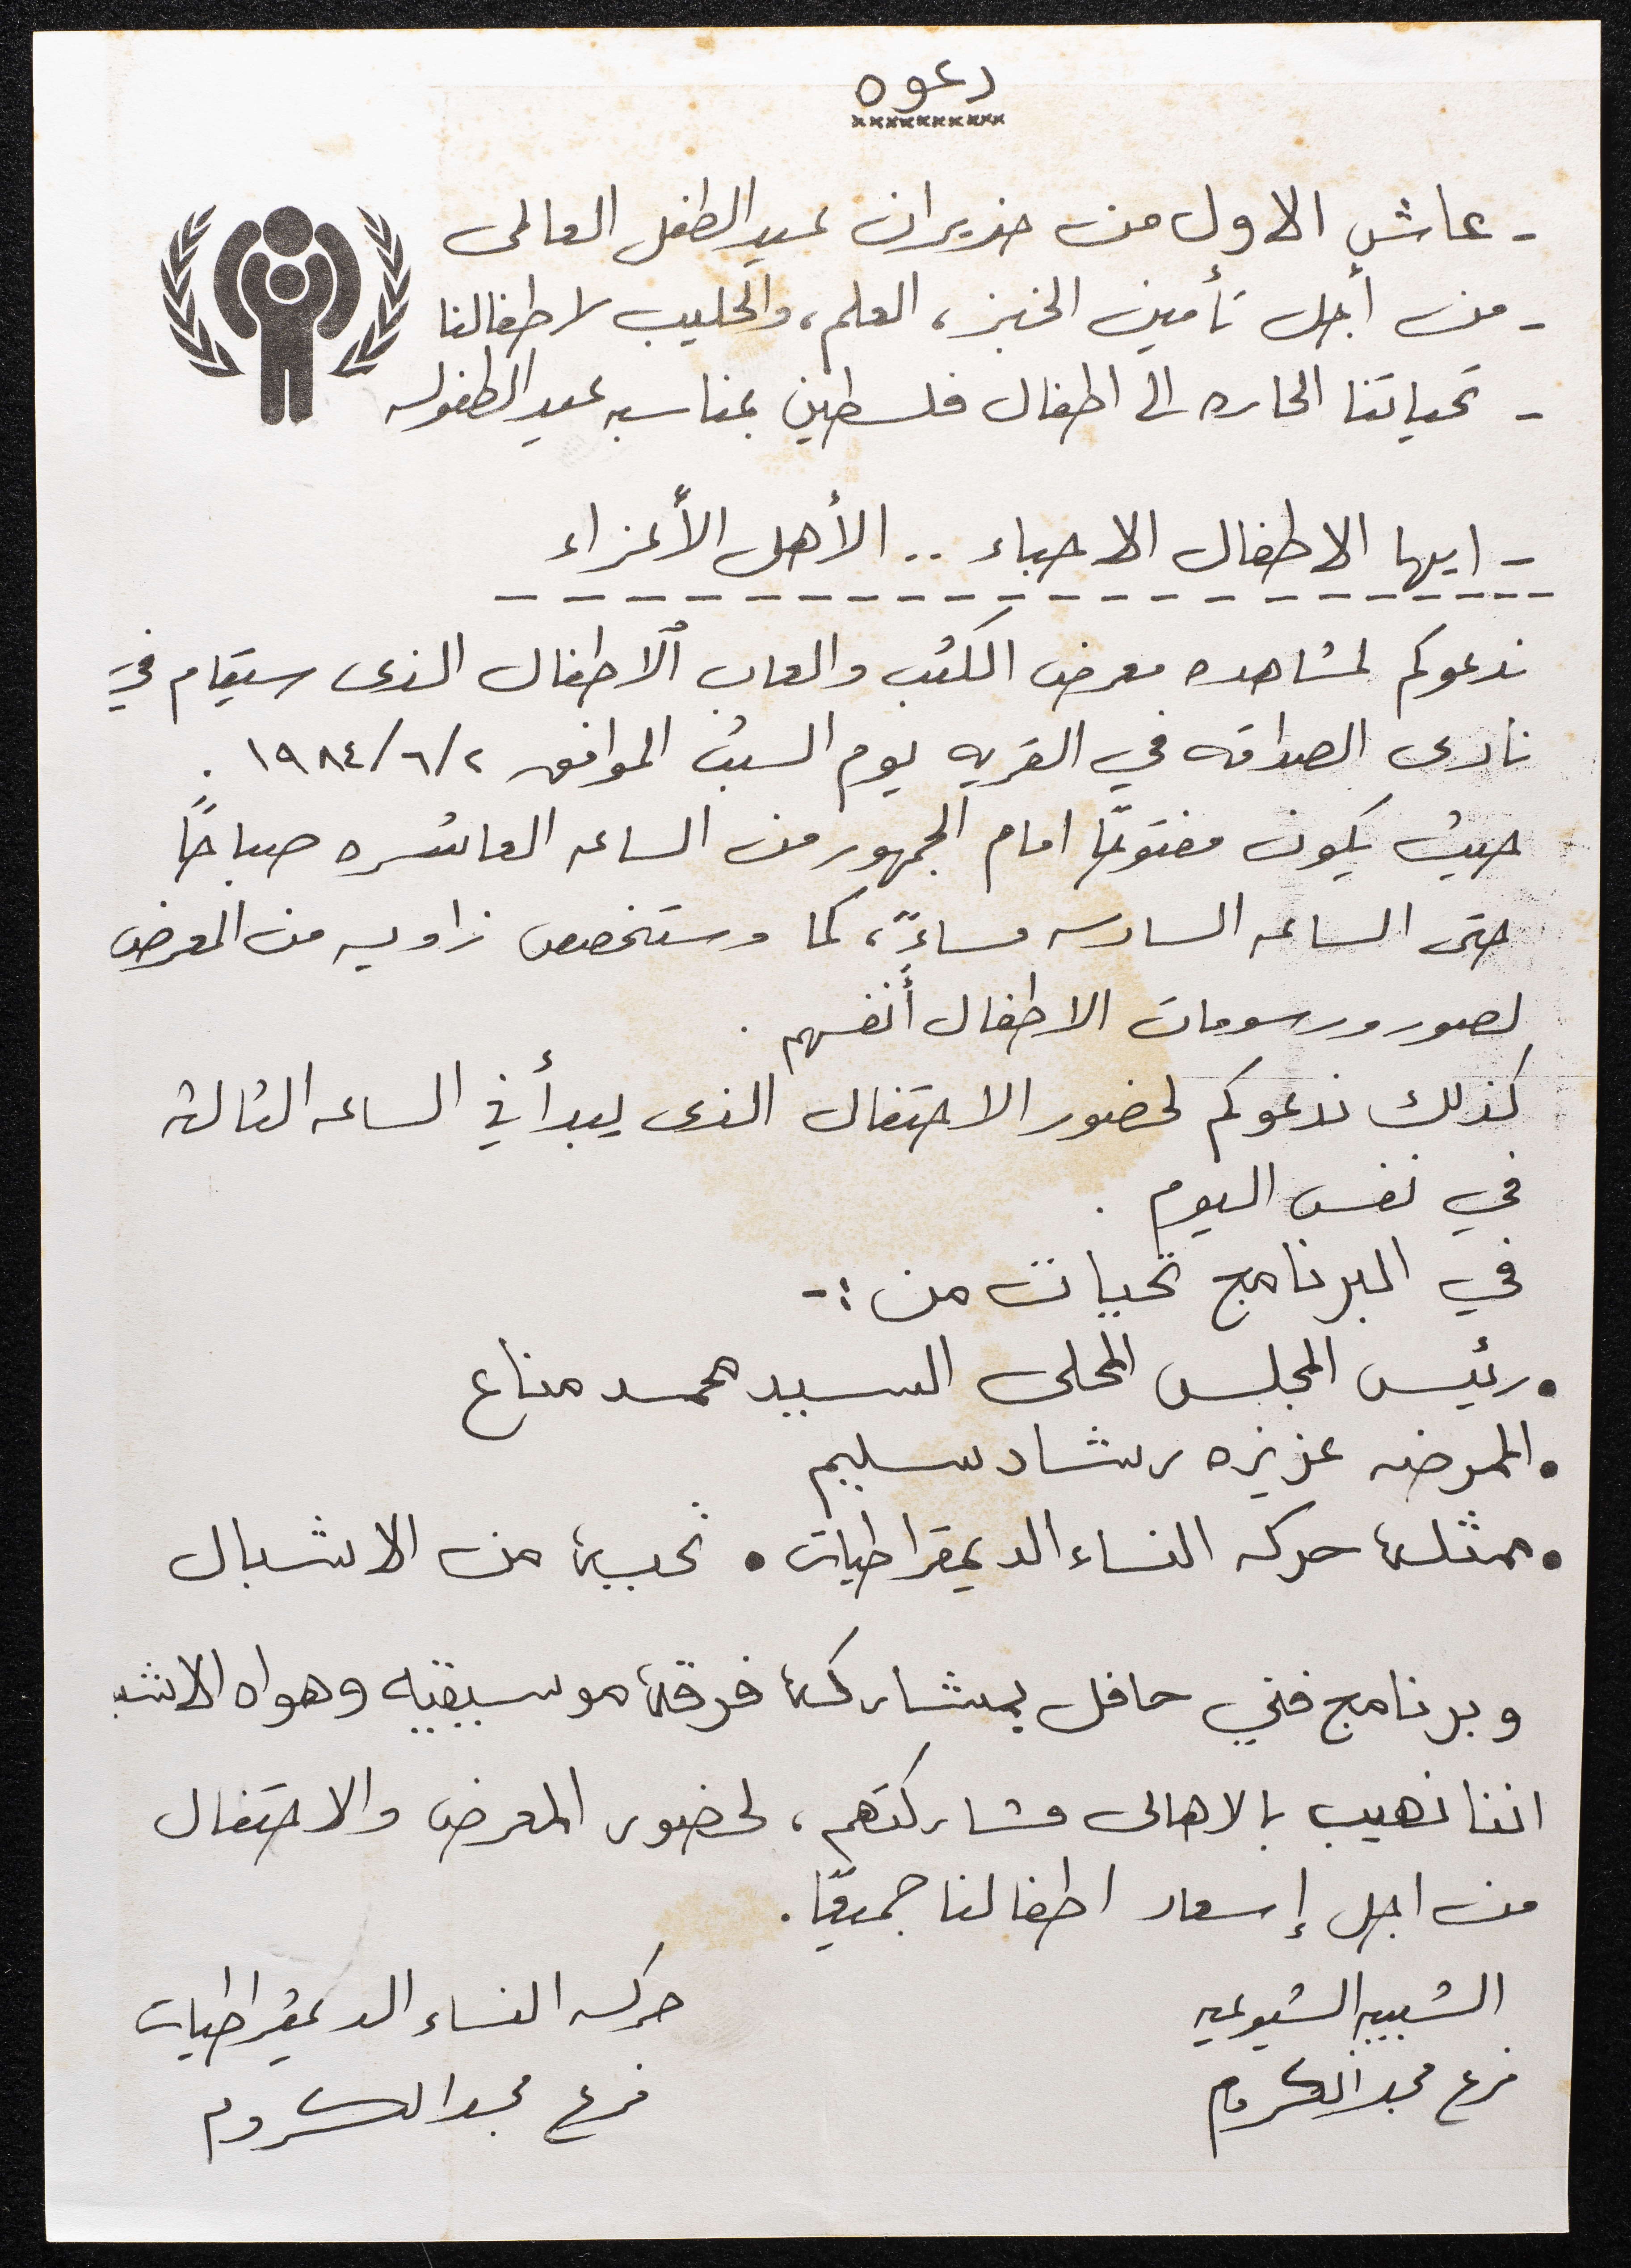 دعوه
- عاش الاول من حزيران عيد الطفل العالمى
- من أجل تأمين الخبز، العلم، والحليب لاطفالنا
- تحياتنا الحاره الى اطفال فلسطين بمناسبه عيد الطفوله
- ايها الاطفال الاحباء .. الأهل الأعزاء
ندعوكم لمشاهده معرض الكتب والعاب الاطفال الذى سيقام في
نادى الصداقه في القريه يوم السبت الموافق ١٩٨٤/٦/٢ .
حيث يكون مفتوحًا امام الجمهور من الساعه العاشره صباحًا
حتى الساعه السادسه مساءً، كما وستخصص زاويه من المعرض
لصور ورسومات الاطفال أنفسهم .
كذلك ندعوكم لحضور الاحتفال الذى يبدأ في الساعه الثالثه
في نفس اليوم .
في البرنامج تحيات من :-
• رئيس المجلس المحلى السيد محمد مناع
• الممرضه عزيزه رشاد سليم
• ممثلة حركه النساء الديمقراطيات • تحية من الاشبال
وبرنامج فني حافل بمشاركة فرقة موسيقيه وهواه الاشبـ
اننا نهيب بالاهالى مشاركتهم، لحضور المعرض والاحتفال
من اجل إسعاد اطفالنا جميعًا.
الشبيبه الشيوعيه
فرع مجد الكروم
حركه النساء الديمقراطيات
فرع مجد الكروم